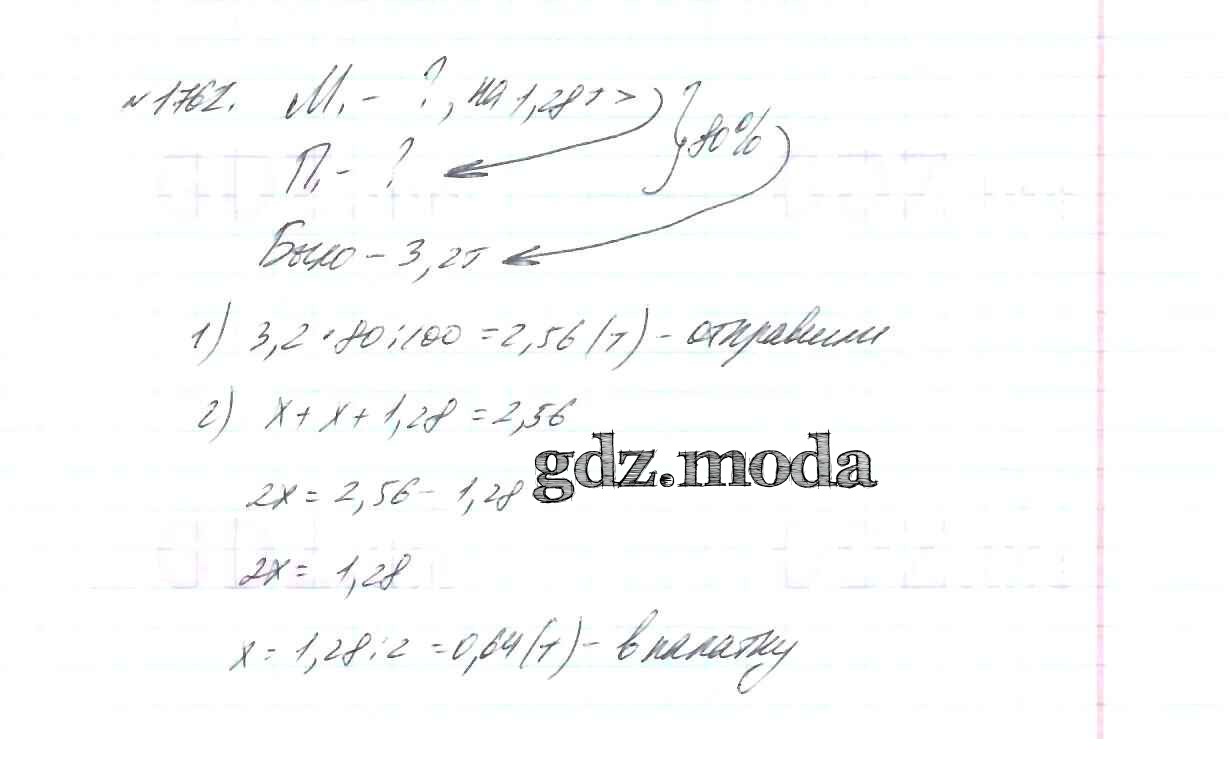 №1762. М. - ?, на 1,28 т > } 80%
П. - ?
Было - 3,2т
1) 3,2 · 80 : 100 = 2,56 (т) - отправили
2) x + x + 1,28 = 2,56
gdz.moda
2x = 2,56 - 1,28
2x = 1,28
x = 1,28 : 2 = 0,64 (т) - в палатку